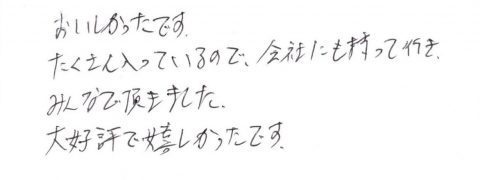 おいしかったです.
たくさん入っているので、会社にも持って行き.
みんなで頂きました.
大好評で嬉しかったです.